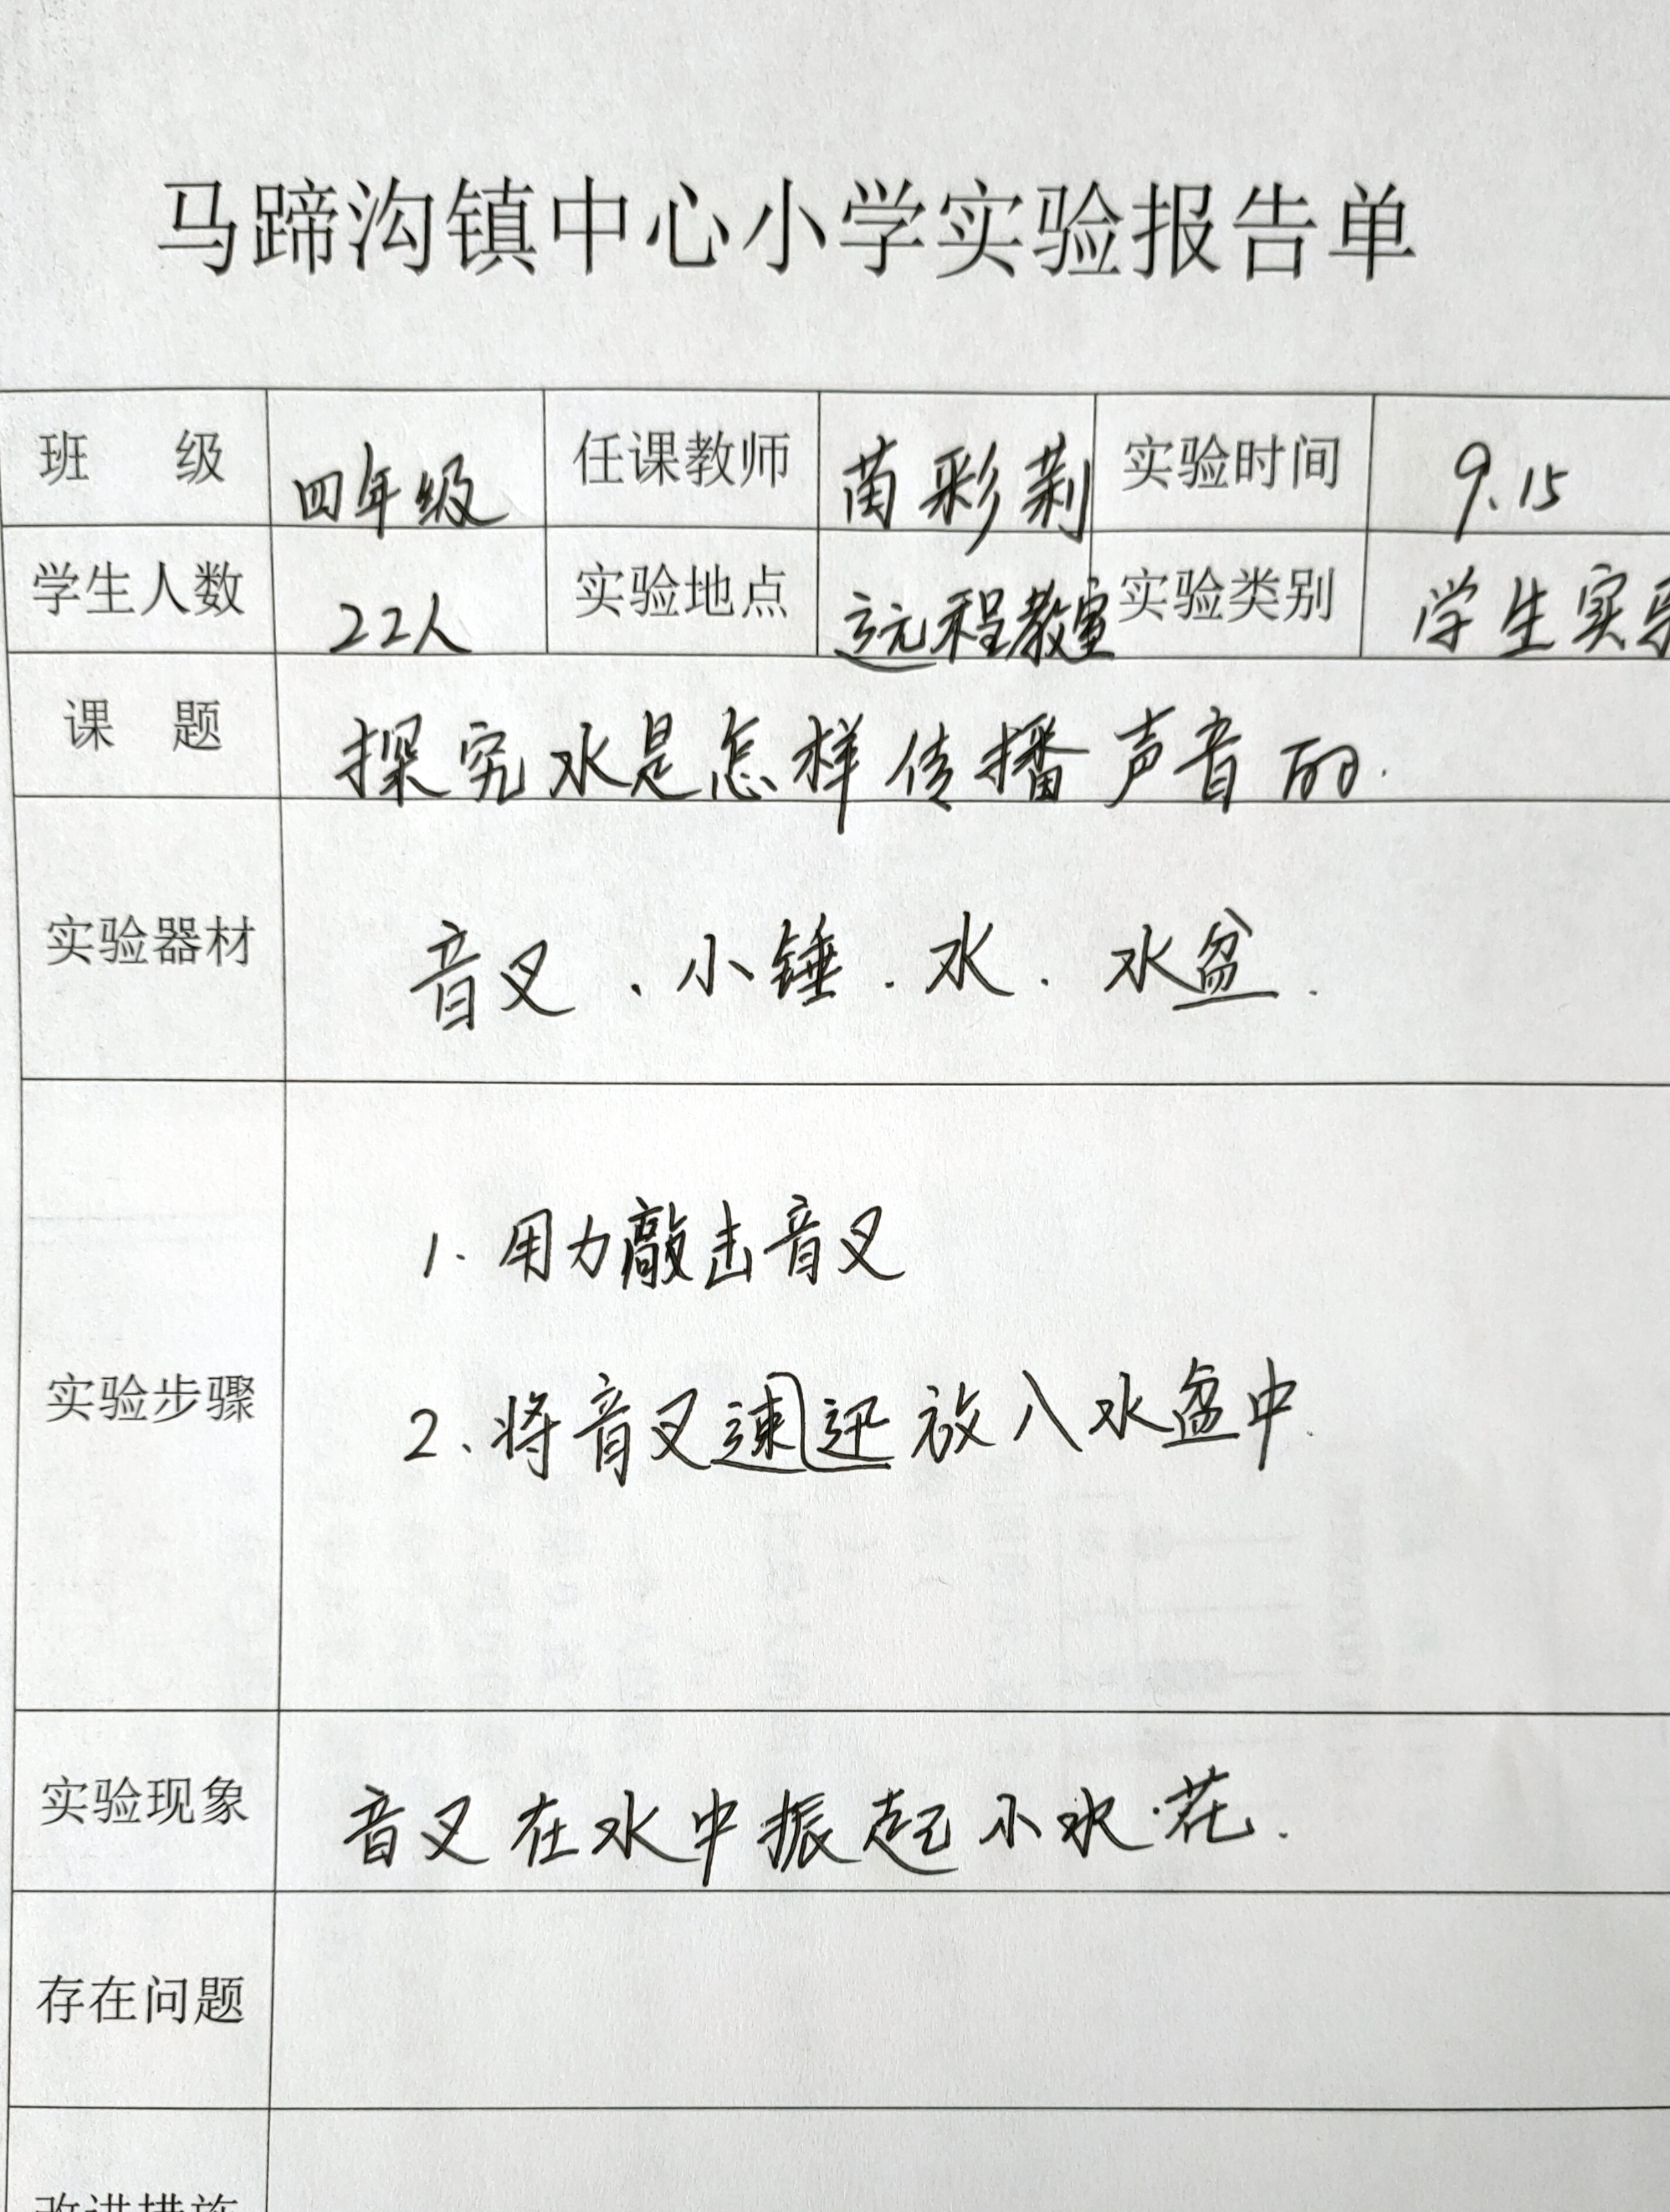 马蹄沟镇中心小学实验报告单
班 级 四年级 任课教师 苗彩莉 实验时间 9.15
学生人数 22人 实验地点 远程教室 实验类别 学生实
课 题 探究水是怎样传播声音的.
实验器材 音叉、小锤.水.水盆.
1.用力敲击音叉
实验步骤
2、将音叉速迅放入水盆中.
实验现象 音叉在水中振起小水花.
存在问题
改进措施